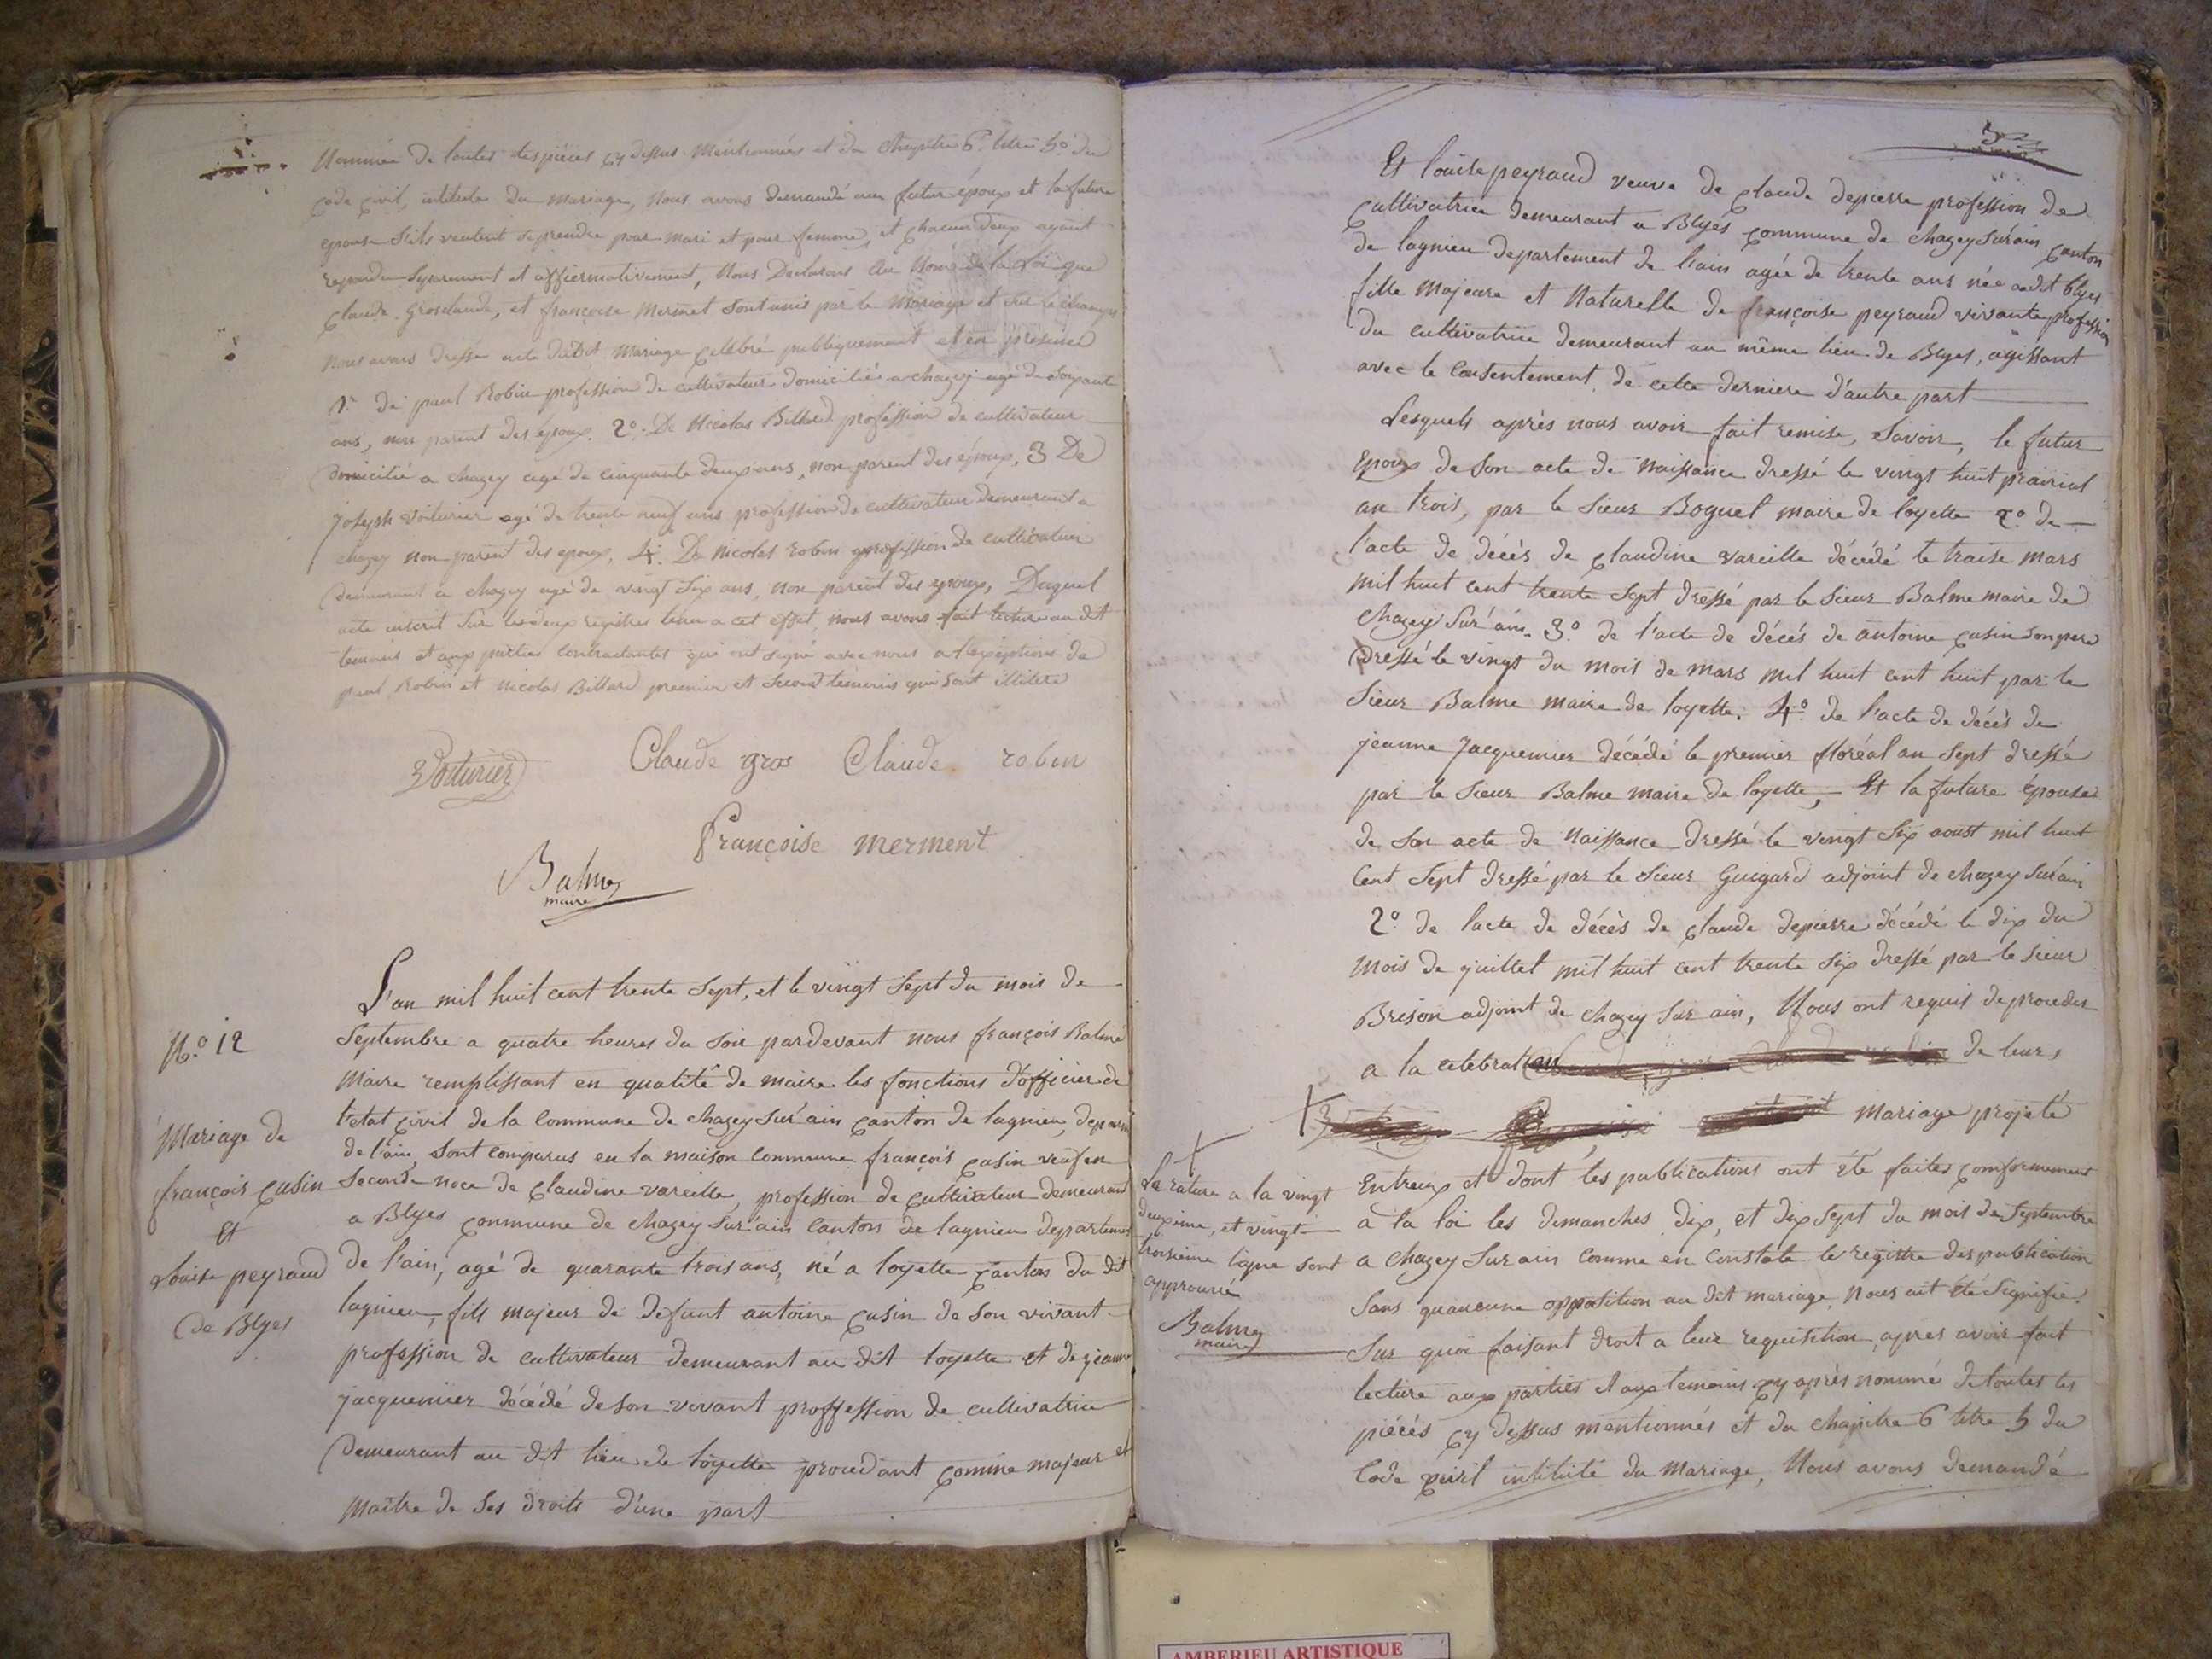 Nommée de toutes les pièces cy dessus Mentionnées et du Chapitre 6. titre 5.o du
code civil, intitulée du mariage, Nous avons demandé aux futur époux et la future
epouse s'ils veulent se prendre pour mari et pour femme, et chacun deux ayant
repondu separement et affiermativement, Nous Declarons au Nom de la Loi que
Claude Grosclaude, et françoise Mermet sont unis par le Mariage et sur le champs
Nous avons dressé acte dudit Mariage célébré publiquement et en présence
1.o de paul Robin profession de cultivateur domicilié a chazey agé de soixante
ans, non parent des époux. 2.o De Nicolas Billiard profession de cultivateur
domicilié a chazey agé de cinquante deux ans, non parent des époux, 3 De
Josephe Voiturier agé de trente neuf ans profession de cultivateur demeurant a
chazey non parent des epoux, 4. De Nicolas robin profession de cultivateur
demeurant a chazey agé de vingt six ans, non parent des epoux, Duquel
acte inscrit sur les deux registres tenu a cet effet, nous avons fait lecture au dit
temoins et aux parties contractantes qui ont signé avec nous a l'exceptions de
paul Robin et Nicolas Billard premier et second témoins qui sont illiteré
Voiturier Claude gros Claude robin
françoise merment
Balme
maire
N.o 12
Mariage de
françois cusin
Et
Louise peyraud
de Blyes
L'an mil huit cent trente sept, et le vingt sept du mois de
Septembre a quatre heures du soir pardevant nous françois Balme
Maire remplissant en qualité de maire les fonctions d'officier de
l'etat civil de la commune de chazey sur'ain canton de lagnieu, depart
de l'ain, sont comparus en la maison commune françois cusin veuf en
seconde noce de Claudine vareille, profession de cultivateur demeurant
a Blyes commune de chazey sur'ain canton de lagnieu departement
de l'ain, agé de quarante trois ans, né a loyette canton du dit
lagnieu, fils majeur de defunt antoine cusin de son vivant
profession de cultivateur demeurant au dit loyette et de jeanne
jacquemier décédé de son vivant proffession de cultivatrice
Demeurant au dit lieu de loyette procedant comme majeur et
Maître de ses droits d'une part
5
Et louise peyraud veuve de Claude depierre profession de
cultivatrice demeurant a Blyes commune de chazey sur'ain canton
de lagnieu departement de l'ain agée de trente ans née audit blyes
fille Majeure et Naturelle de françoise peyraud vivante profession
du cultivatrice demeurant au même lieu de Blyes, agissant
avec le consentement de cette derniere d'autre part
Lesquels après nous avoir fait remise, savoir, le futur
epoux de son acte de Naissance dressé le vingt huit prairial
an trois, par le sieur Boguel maire de loyette 2.o de
l'acte de décès de Claudine vareille décédé le traise mars
mil huit cent trente sept dressé par le sieur Balme maire de
chazey sur'ain. 3.o de l'acte de décés de antoine cusin son pere
dressé le vingt du mois de mars mil huit cent huit par le
sieur Balme maire de loyette. 4.o de l'acte de décès de
jeanne Jacquemier décédé le premier floréal an sept dressé
par le sieur Balme maire de loyette, Et la future épouse
de son acte de Naissance dressé le vingt six aoust mil huit
cent sept dressé par le sieur Guigard adjoint de chazey sur'ain
2.o de l'acte de décès de Claude depierre décédé le dix du
Mois de juillet mil huit cent trente six dressé par le sieur
Brison adjoint de chazey sur ain, Nous ont requis de proceder
a la celebration de leurs
Mariage projeté
Entreux et dont les publications ont été faites comformement
a la loi les dimanches dix, et dix sept du mois de Septembre
a chazey sur ain comme en constate le registre des publication
sans quaucune opposition au dit mariage, Nous ait été signifié.
Sur quoi faisant droit a leur requisition, apres avoir fait
lecture aux parties et aux temoins cy après nommé de toutes les
piécés cy dessus mentionnés et du chapitre 6 titre 5 du
Code civil intitulé du Mariage, Nous avons demandé
La rature a la vingt
deuxieme, et vingt
troisieme ligne sont
approuvé
Balme
maire
AMBERIEU ARTISTIQUE